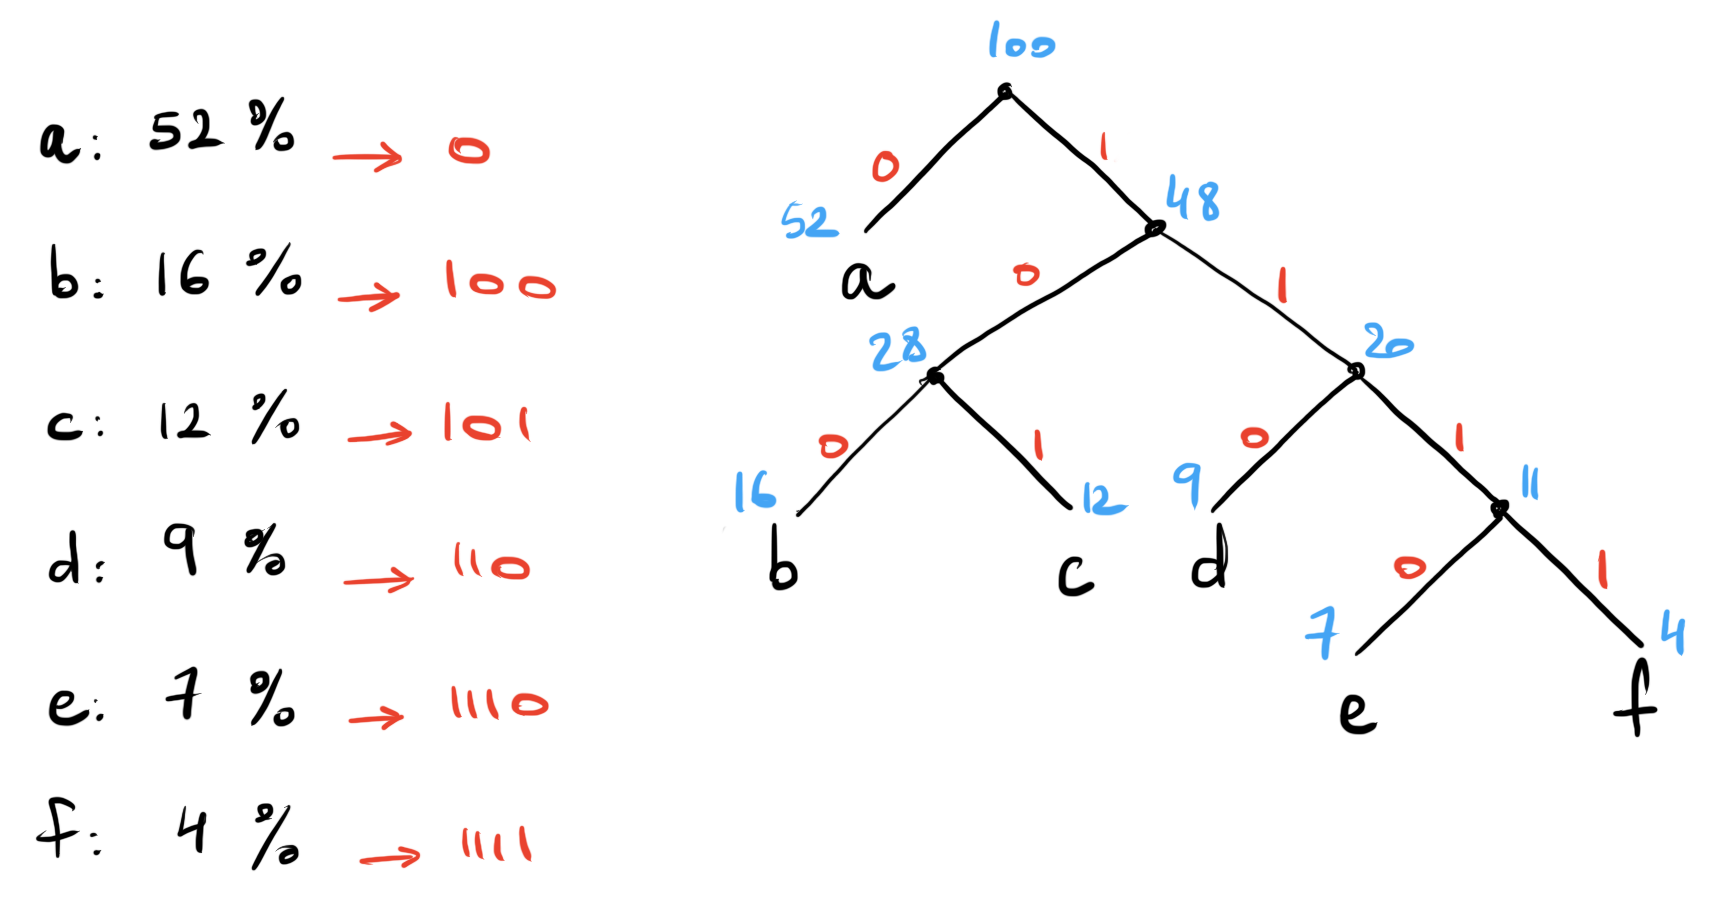 a: 52 % → 0
b: 16 % → 100
c: 12 % → 101
d: 9 % → 110
e: 7 % → 1110
f: 4 % → 1111
100
0 1
52 48
a
0 1
28 20
0 1 0 1
16 12 9 11
b c d
0 1
7 4
e f